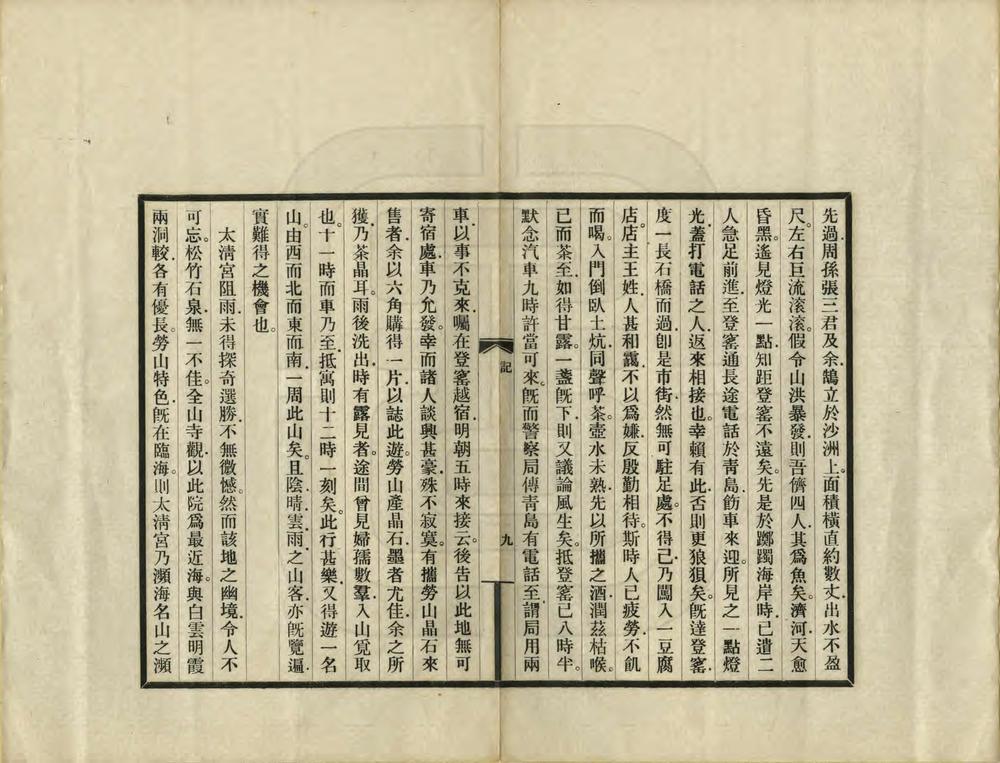 先過周孫張三君及余.鵠立於沙洲上。面積橫直約數丈.出水不盈
尺。左右巨流滾滾。假令山洪暴發.則吾儕四人.其爲魚矣。濟河.天愈
昏黑。遙見燈光一點.知距登窰不遠矣。先是於躑躅海岸時.已遣二
人急足前進.至登窰通長途電話於靑島.飭車來迎。所見之一點燈
光.蓋打電話之人.返來相接也。幸賴有此.否則更狼狽矣。旣達登窰.
度一長石橋而過.卽是市街.然無可駐足處。不得已.乃闖入一豆腐
店。店主王姓.人甚和靄.不以爲嫌.反殷勤相待。斯時人已疲勞.不飢
而喝。入門倒臥土炕.同聲呼茶。壺水未熟.先以所攜之酒.潤茲枯喉。
已而茶至.如得甘露。一盞旣下.則又議論風生矣。抵登窰已八時半。
默念汽車九時許當可來。旣而警察局傳靑島有電話至.謂局用兩
記
九
車.以事不克來.囑在登窰越宿.明朝五時來接云。後告以此地無可
寄宿處.車乃允發。幸而諸人談興甚豪.殊不寂寞。有攜勞山晶石來
售者.余以六角購得一片.以誌此遊。勞山產晶石.墨者尤佳.余之所
獲.乃茶晶耳。雨後洗出.時有露見者。途間曾見婦孺數羣.入山覓取
也。十一時而車乃至.抵寓則十二時一刻矣。此行甚樂.又得遊一名
山。由西而北而東而南.一周此山矣。且陰.晴.雲.雨.之山容.亦旣覽遍.
實難得之機會也。
太淸宮阻雨.未得探奇選勝.不無微憾。然而該地之幽境.令人不
可忘。松竹石泉.無一不佳。全山寺觀.以此院爲最近海。與白雲明霞
兩洞較.各有優長。勞山特色.旣在臨海。則太淸宮乃瀕海名山之瀕